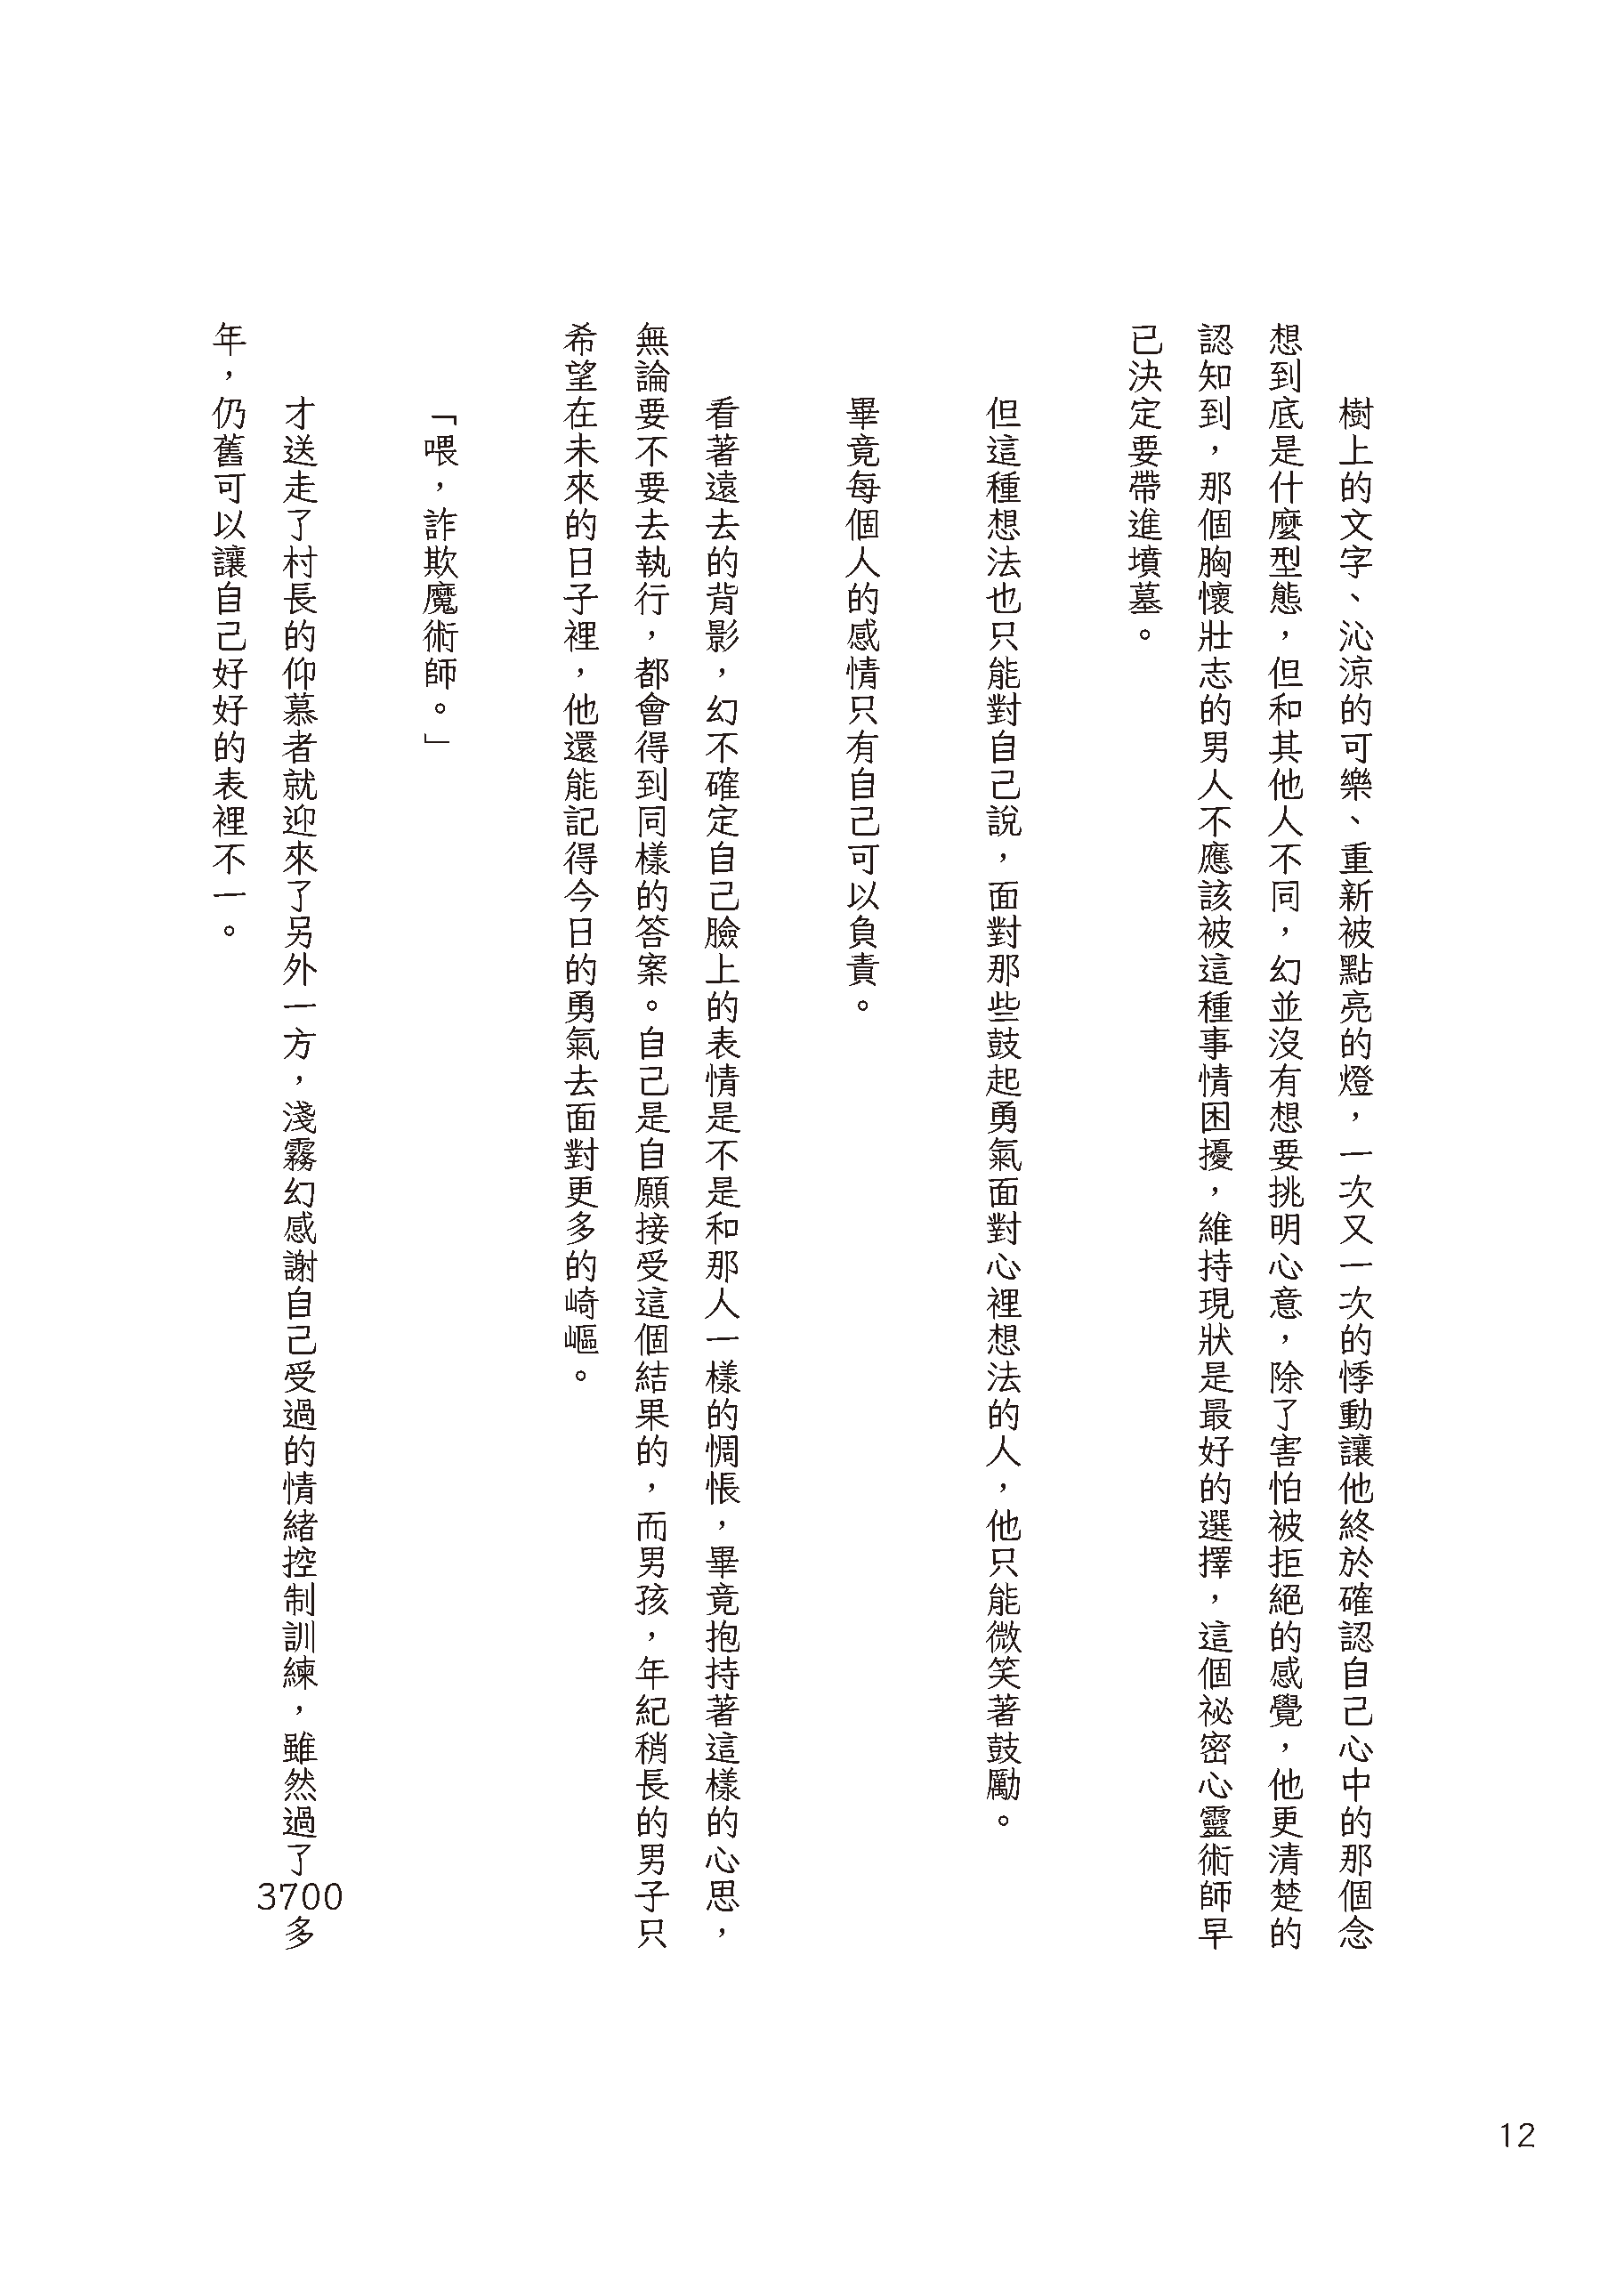 樹上的文字、沁涼的可樂、重新被點亮的燈，一次又一次的悸動讓他終於確認自己心中的那個念
想到底是什麼型態，但和其他人不同，幻並沒有想要挑明心意，除了害怕被拒絕的感覺，他更清楚的
認知到，那個胸懷壯志的男人不應該被這種事情困擾，維持現狀是最好的選擇，這個祕密心靈術師早
已決定要帶進墳墓。
但這種想法也只能對自己說，面對那些鼓起勇氣面對心裡想法的人，他只能微笑著鼓勵。
畢竟每個人的感情只有自己可以負責。
看著遠去的背影，幻不確定自己臉上的表情是不是和那人一樣的惆悵，畢竟抱持著這樣的心思，
無論要不要去執行，都會得到同樣的答案。自己是自願接受這個結果的，而男孩，年紀稍長的男子只
希望在未來的日子裡，他還能記得今日的勇氣去面對更多的崎嶇。
「喂，詐欺魔術師。」
才送走了村長的仰慕者就迎來了另外一方，淺霧幻感謝自己受過的情緒控制訓練，雖然過了3700多
年，仍舊可以讓自己好好的表裡不一。
12